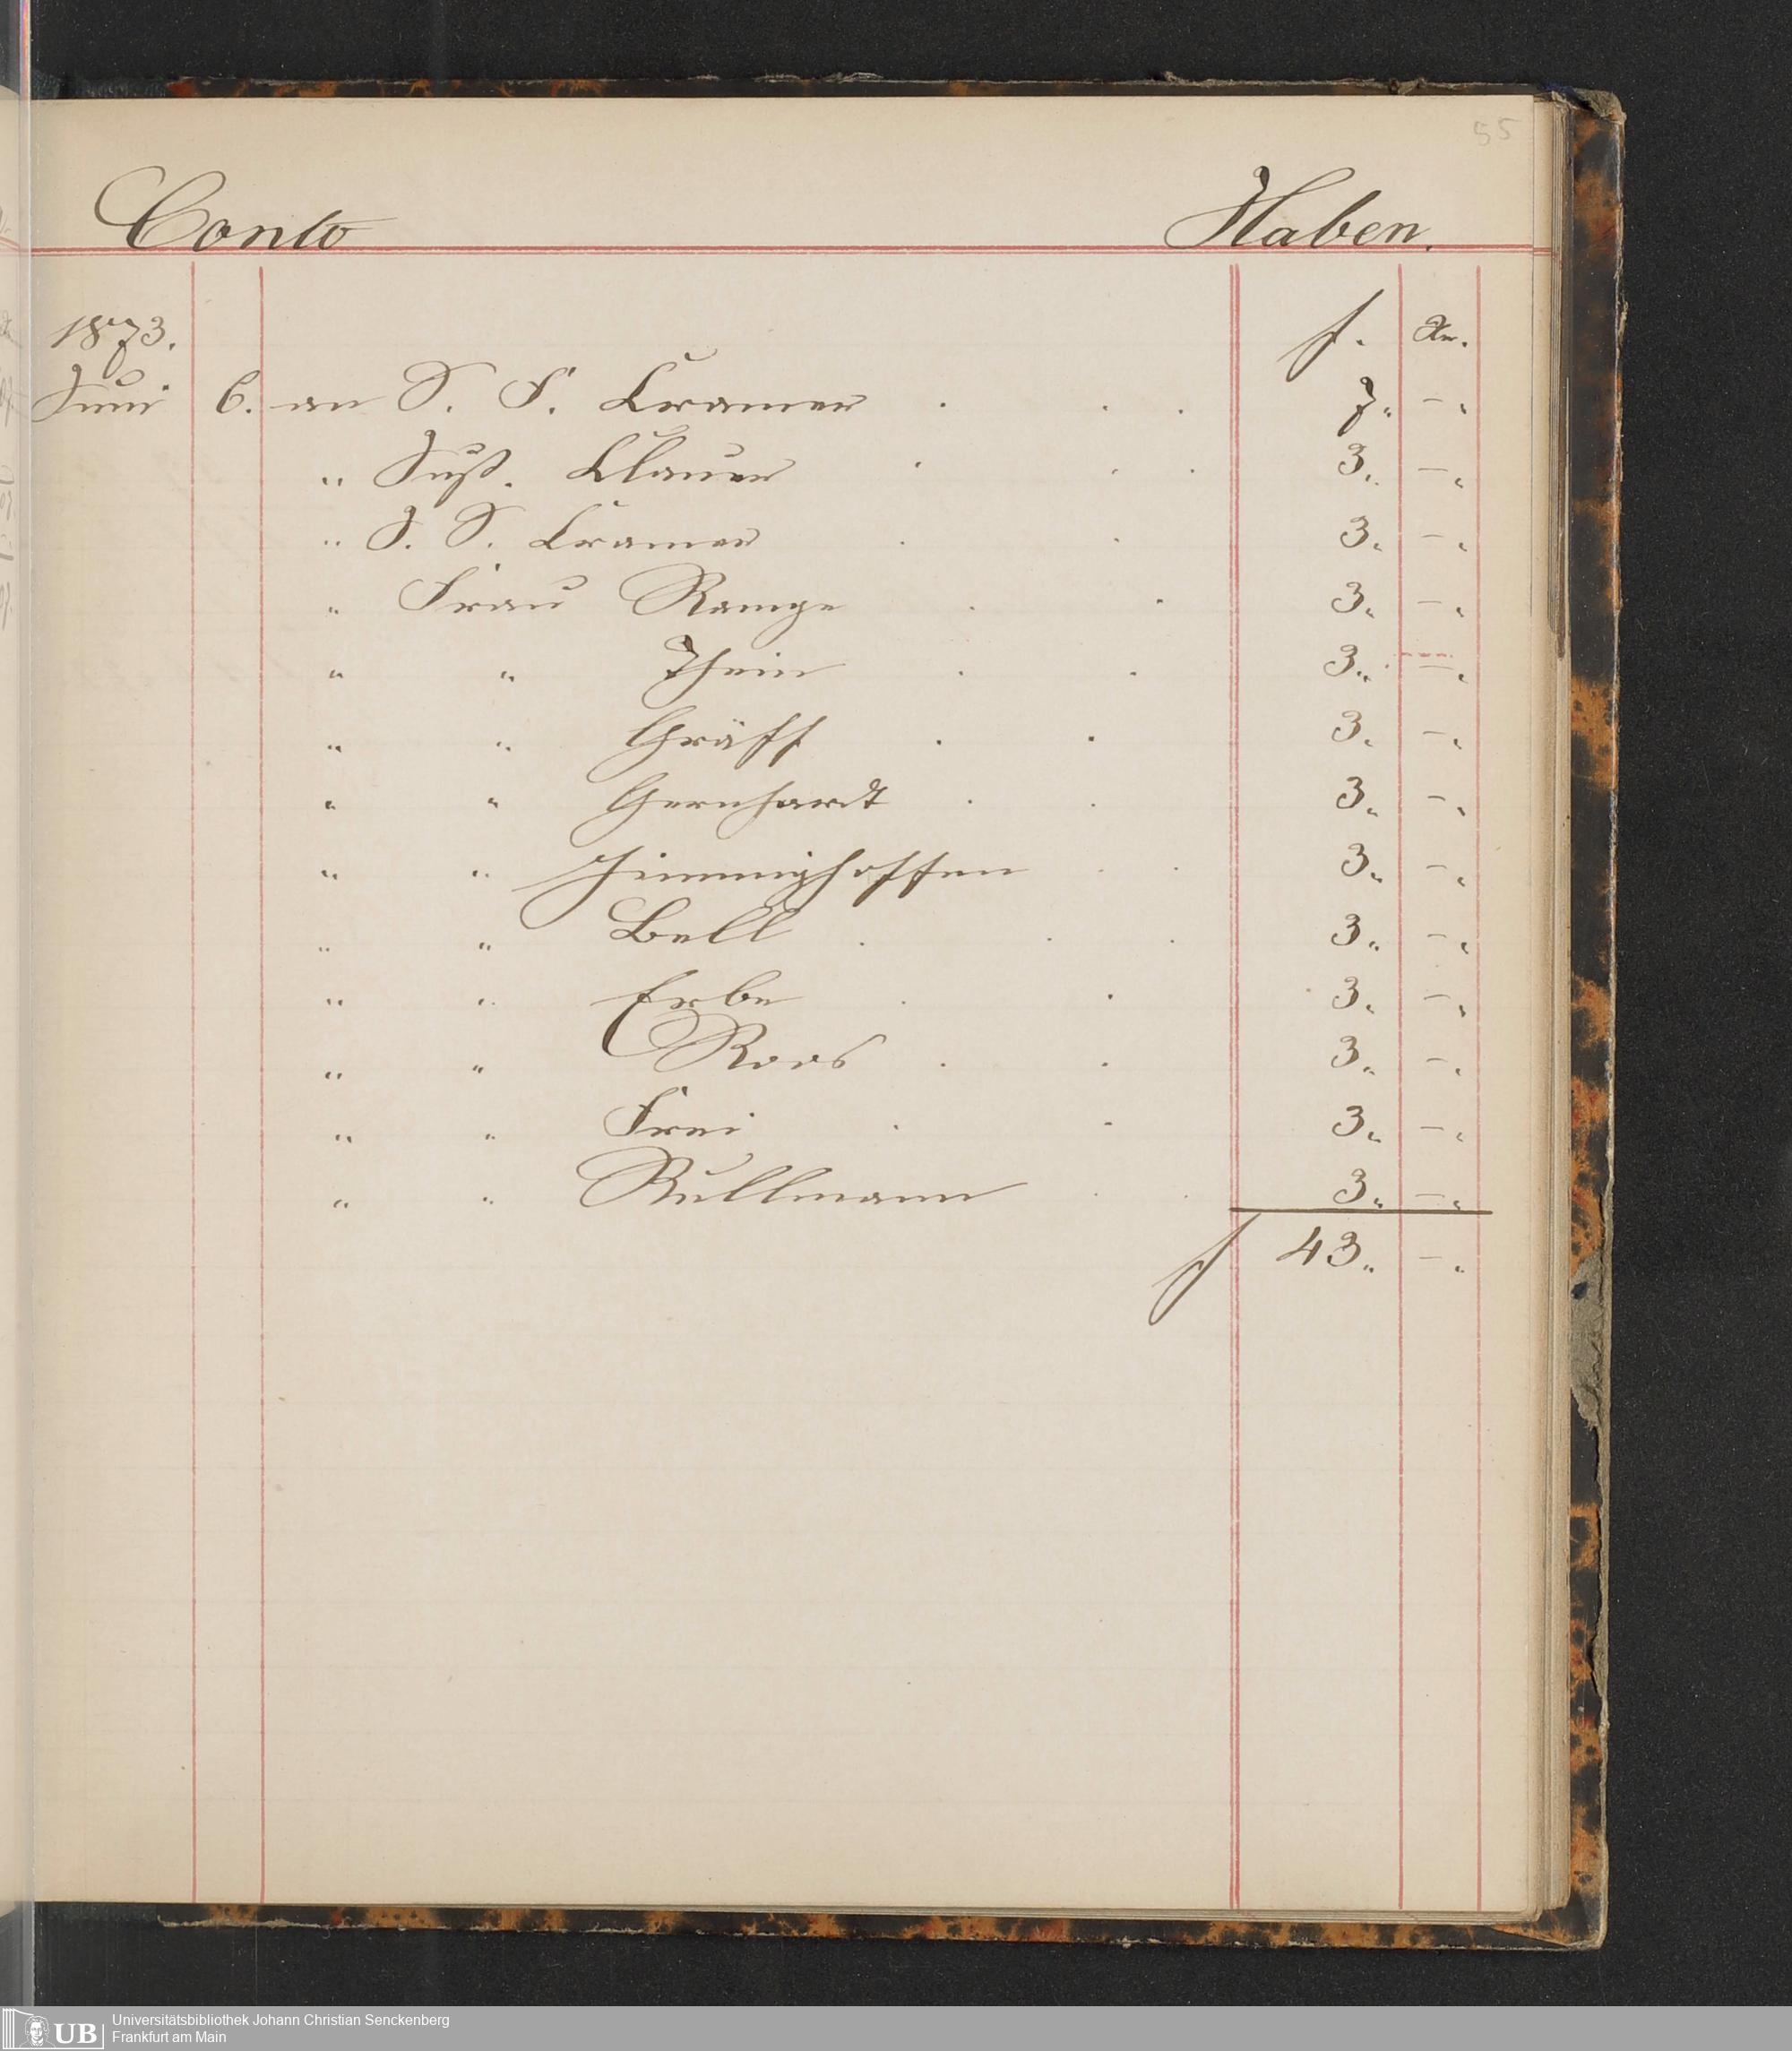 55
Conto Haben.
1873. f. Xr.
Juni 6. an S. F. Cramer . . . 7. -.
" Just. Clauer . . . 3. -.
" J. S. Cramer . . 3. -.
" Frau Rampe . . 3. -.
" " Thein . . 3. -.
" " Gräff . . 3. -.
" " Gernhardt . . 3. -.
" " Jimmighoffen . . 3. -.
" " Bell . . . 3. -.
" " Erbe . . 3. -.
" " Roos . . 3. -.
" " Frei . . 3. -.
" " Rullmann . . 3. -.
f 43. -.
UB Universitätsbibliothek Johann Christian Senckenberg
Frankfurt am Main